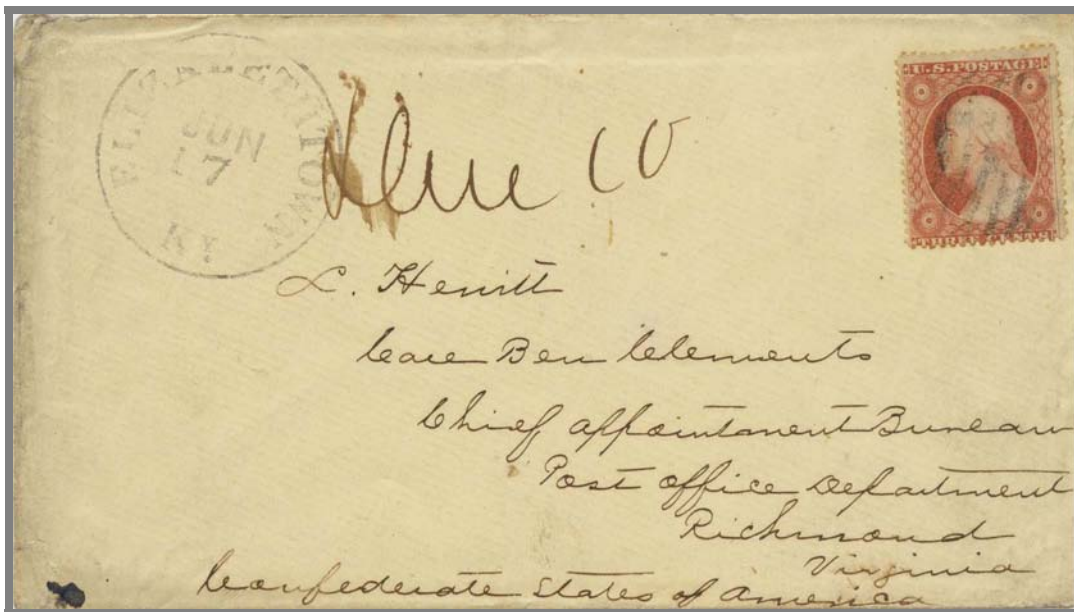 ELIZABETHTOWN
JUN
17
KY.
U.S. POSTAGE
THREE CENTS
Due 10
L. Hewitt
Care Ben Clements
Chief appointment Bureau
Post office Department
Richmond
Virginia
Confederate States of America